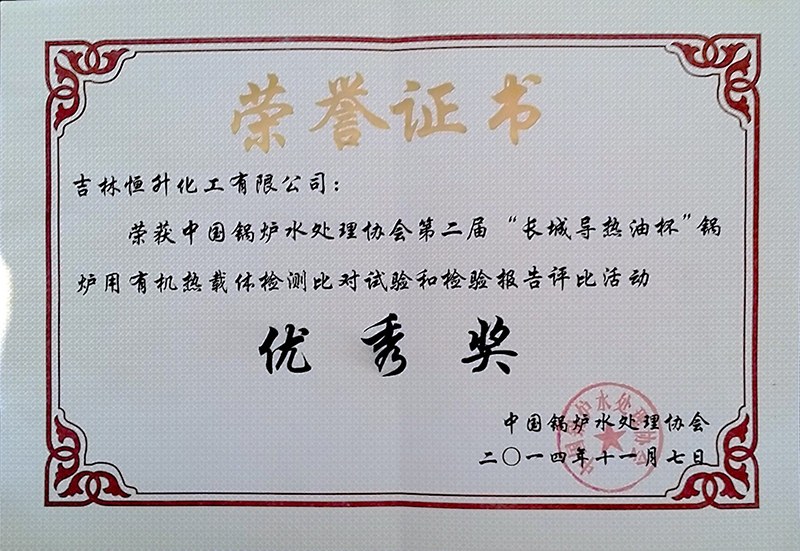 荣誉证书
吉林恒升化工有限公司：
荣获中国锅炉水处理协会第二届“长城导热油杯”锅
炉用有机热载体检测比对试验和检验报告评比活动
优秀奖
中国锅炉水处理协会
二〇一四年十一月七日
中国锅炉水处理协会